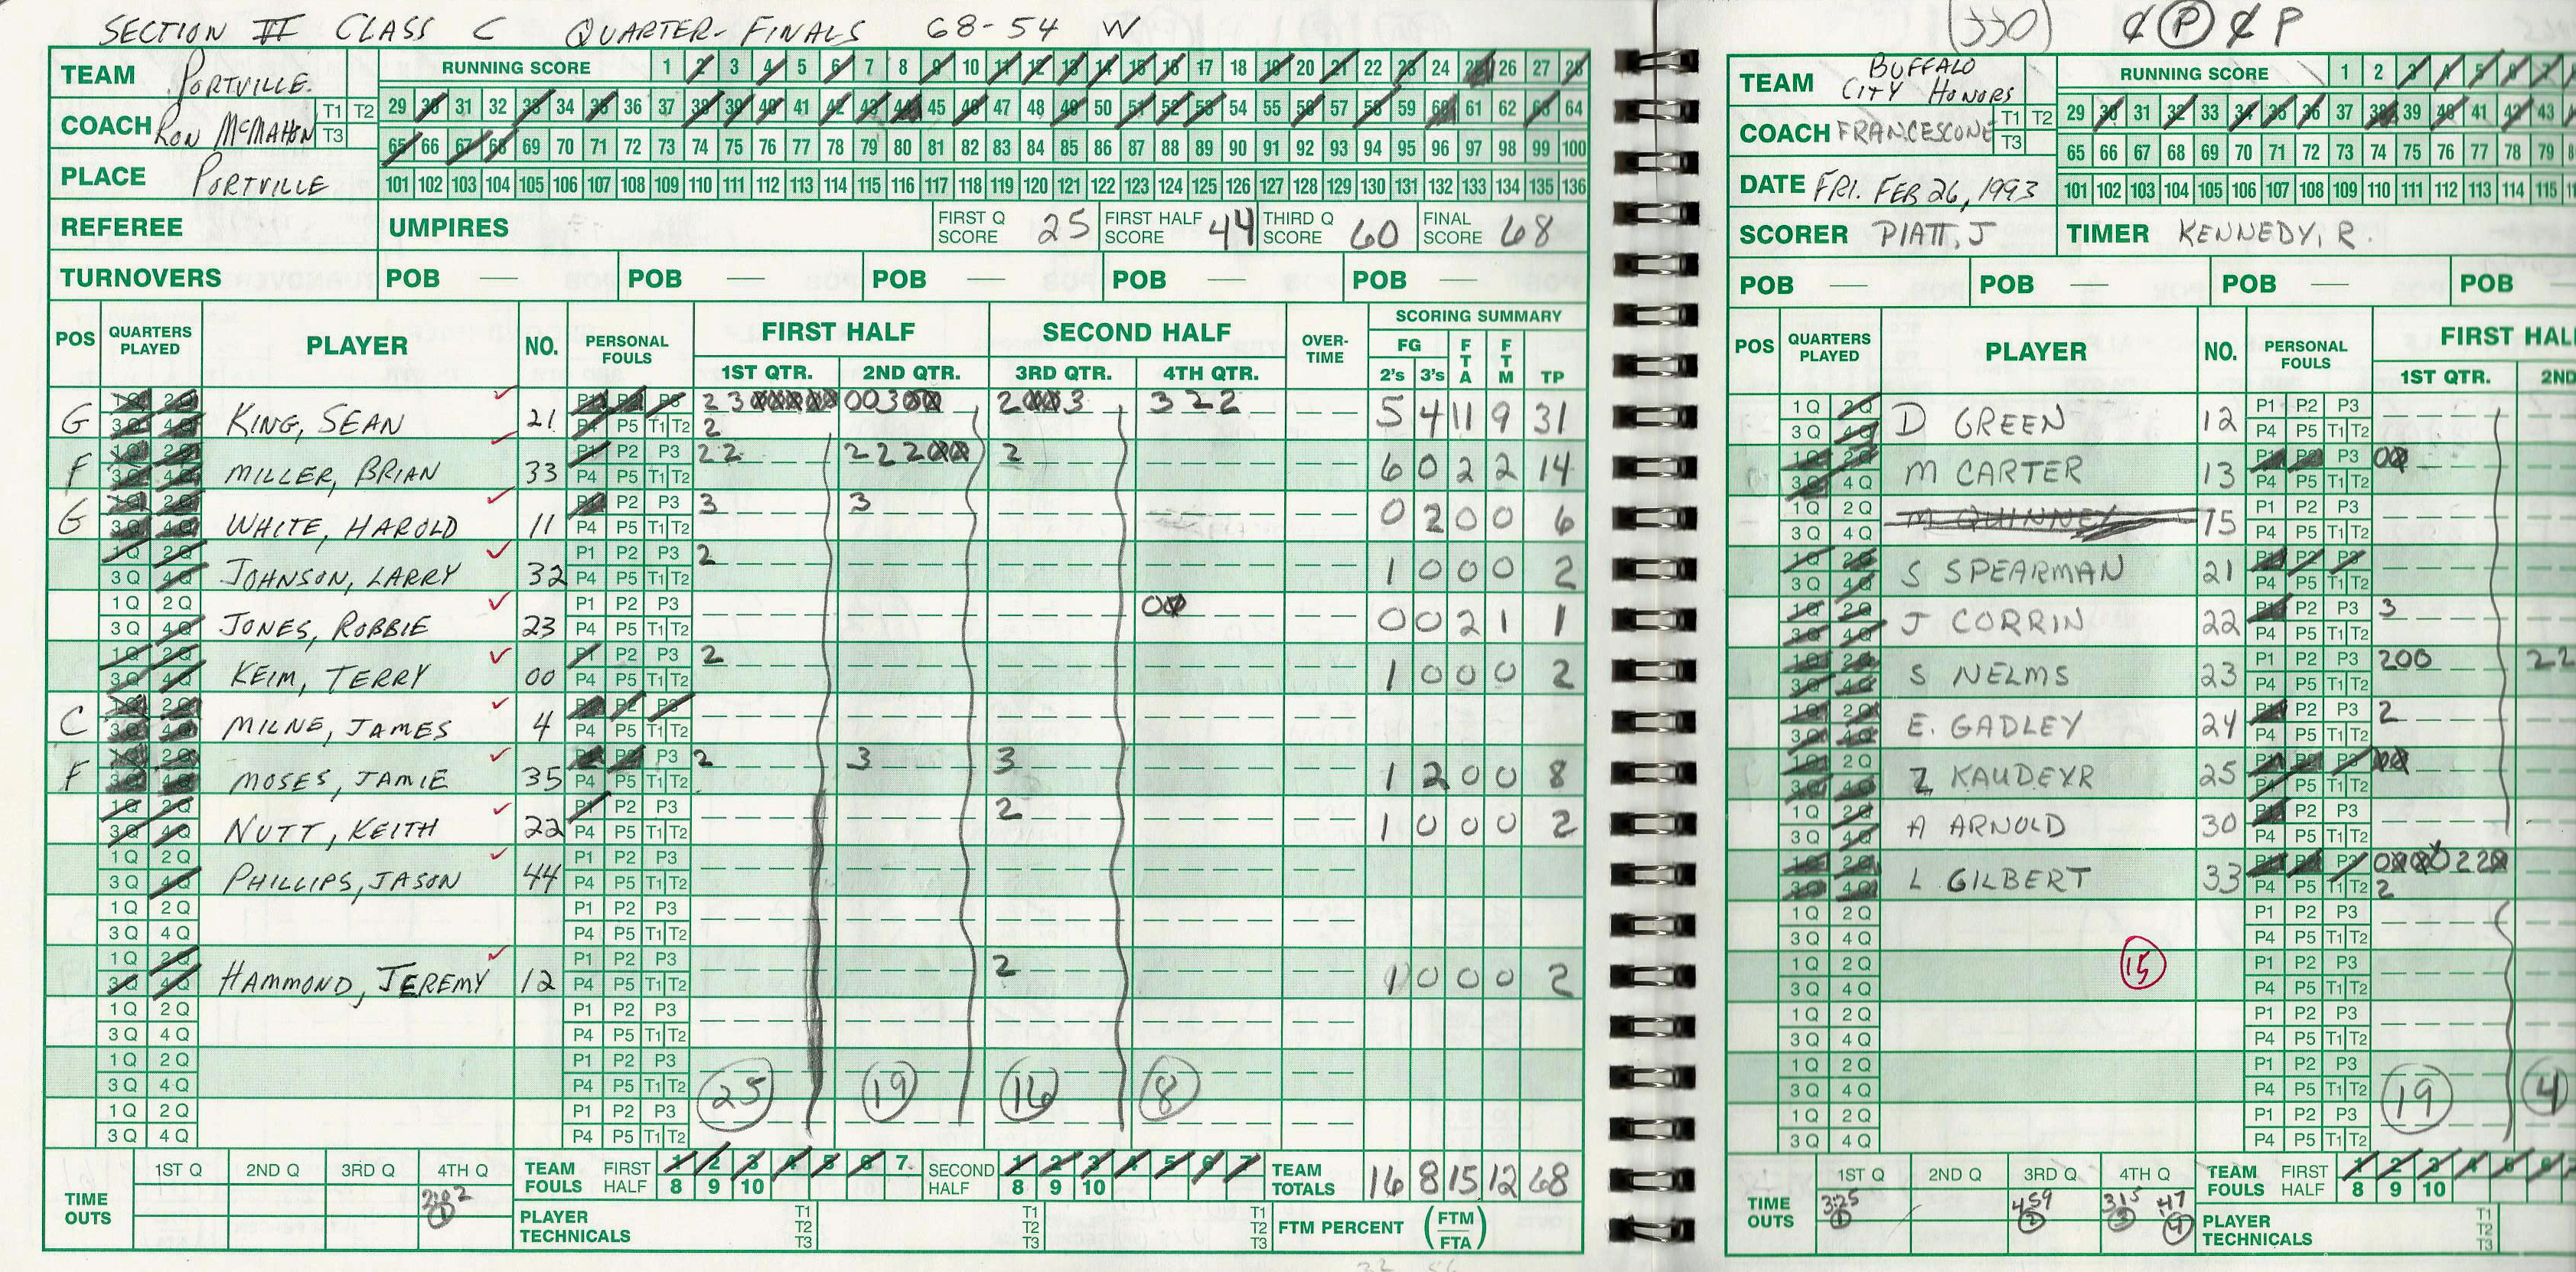 SECTION VI CLASS C QUARTER-FINALS 68-54 W
TEAM PORTVILLE
COACH RON McMAHON T1 T2 T3
PLACE PORTVILLE
RUNNING SCORE 1 2 3 4 5 6 7 8 9 10 11 12 13 14 15 16 17 18 19 20 21 22 23 24 25 26 27 28
29 30 31 32 33 34 35 36 37 38 39 40 41 42 43 44 45 46 47 48 49 50 51 52 53 54 55 56 57 58 59 60 61 62 63 64
65 66 67 68 69 70 71 72 73 74 75 76 77 78 79 80 81 82 83 84 85 86 87 88 89 90 91 92 93 94 95 96 97 98 99 100
101 102 103 104 105 106 107 108 109 110 111 112 113 114 115 116 117 118 119 120 121 122 123 124 125 126 127 128 129 130 131 132 133 134 135 136
REFEREE UMPIRES FIRST Q SCORE 25 FIRST HALF SCORE 44 THIRD Q SCORE 60 FINAL SCORE 68
TURNOVERS POB — POB — POB — POB — POB —
POS QUARTERS PLAYED PLAYER NO. PERSONAL FOULS FIRST HALF SECOND HALF OVER-TIME SCORING SUMMARY
1ST QTR. 2ND QTR. 3RD QTR. 4TH QTR. FG 2's 3's FTA FTM TP
G KING, SEAN 21 5 4 11 9 31
F MILLER, BRIAN 33 6 0 2 2 14
G WHITE, HAROLD 11 3 3 0 2 0 0 6
JOHNSON, LARRY 32 2 1 0 0 0 2
JONES, ROBBIE 23 0 0 2 1 1
KEIM, TERRY 00 2 1 0 0 0 2
C MILNE, JAMES 4
F MOSES, JAMIE 35 2 3 3 1 2 0 0 8
NUTT, KEITH 22 2 1 0 0 0 2
PHILLIPS, JASON 44
HAMMOND, JEREMY 12 2 1 0 0 0 2
25 19 16 8
TIME OUTS 1ST Q 2ND Q 3RD Q 4TH Q
TEAM FOULS FIRST HALF 1 2 3 4 5 6 7 8 9 10 SECOND HALF 1 2 3 4 5 6 7 8 9 10
TEAM TOTALS 16 8 15 12 68
PLAYER TECHNICALS T1 T2 T3 T1 T2 T3 T1 T2 T3 FTM PERCENT (FTM/FTA)
TEAM BUFFALO CITY HONORS
COACH FRANCESCONE T1 T2 T3
DATE FRI. FEB 26, 1993
RUNNING SCORE 1 2 3 4 5 6 7
29 30 31 32 33 34 35 36 37 38 39 40 41 42 43
65 66 67 68 69 70 71 72 73 74 75 76 77 78 79
101 102 103 104 105 106 107 108 109 110 111 112 113 114 115
SCORER PIATT, J TIMER KENNEDY, R.
POB — POB — POB — POB
POS QUARTERS PLAYED PLAYER NO. PERSONAL FOULS FIRST HAL
1ST QTR. 2ND
D GREEN 12
M CARTER 13
M QUINNEY 15
S SPEARMAN 21
J CORRIN 22 3
S NELMS 23 200 22
E. GADLEY 24 2
Z KAUDEYR 25
A ARNOLD 30
L GILBERT 33
15
19 4
TIME OUTS 1ST Q 2ND Q 3RD Q 4TH Q
3:25 1 459 2 315 3 47 4
TEAM FOULS FIRST HALF 1 2 3 4 5 6 8 9 10
PLAYER TECHNICALS T1 T2 T3